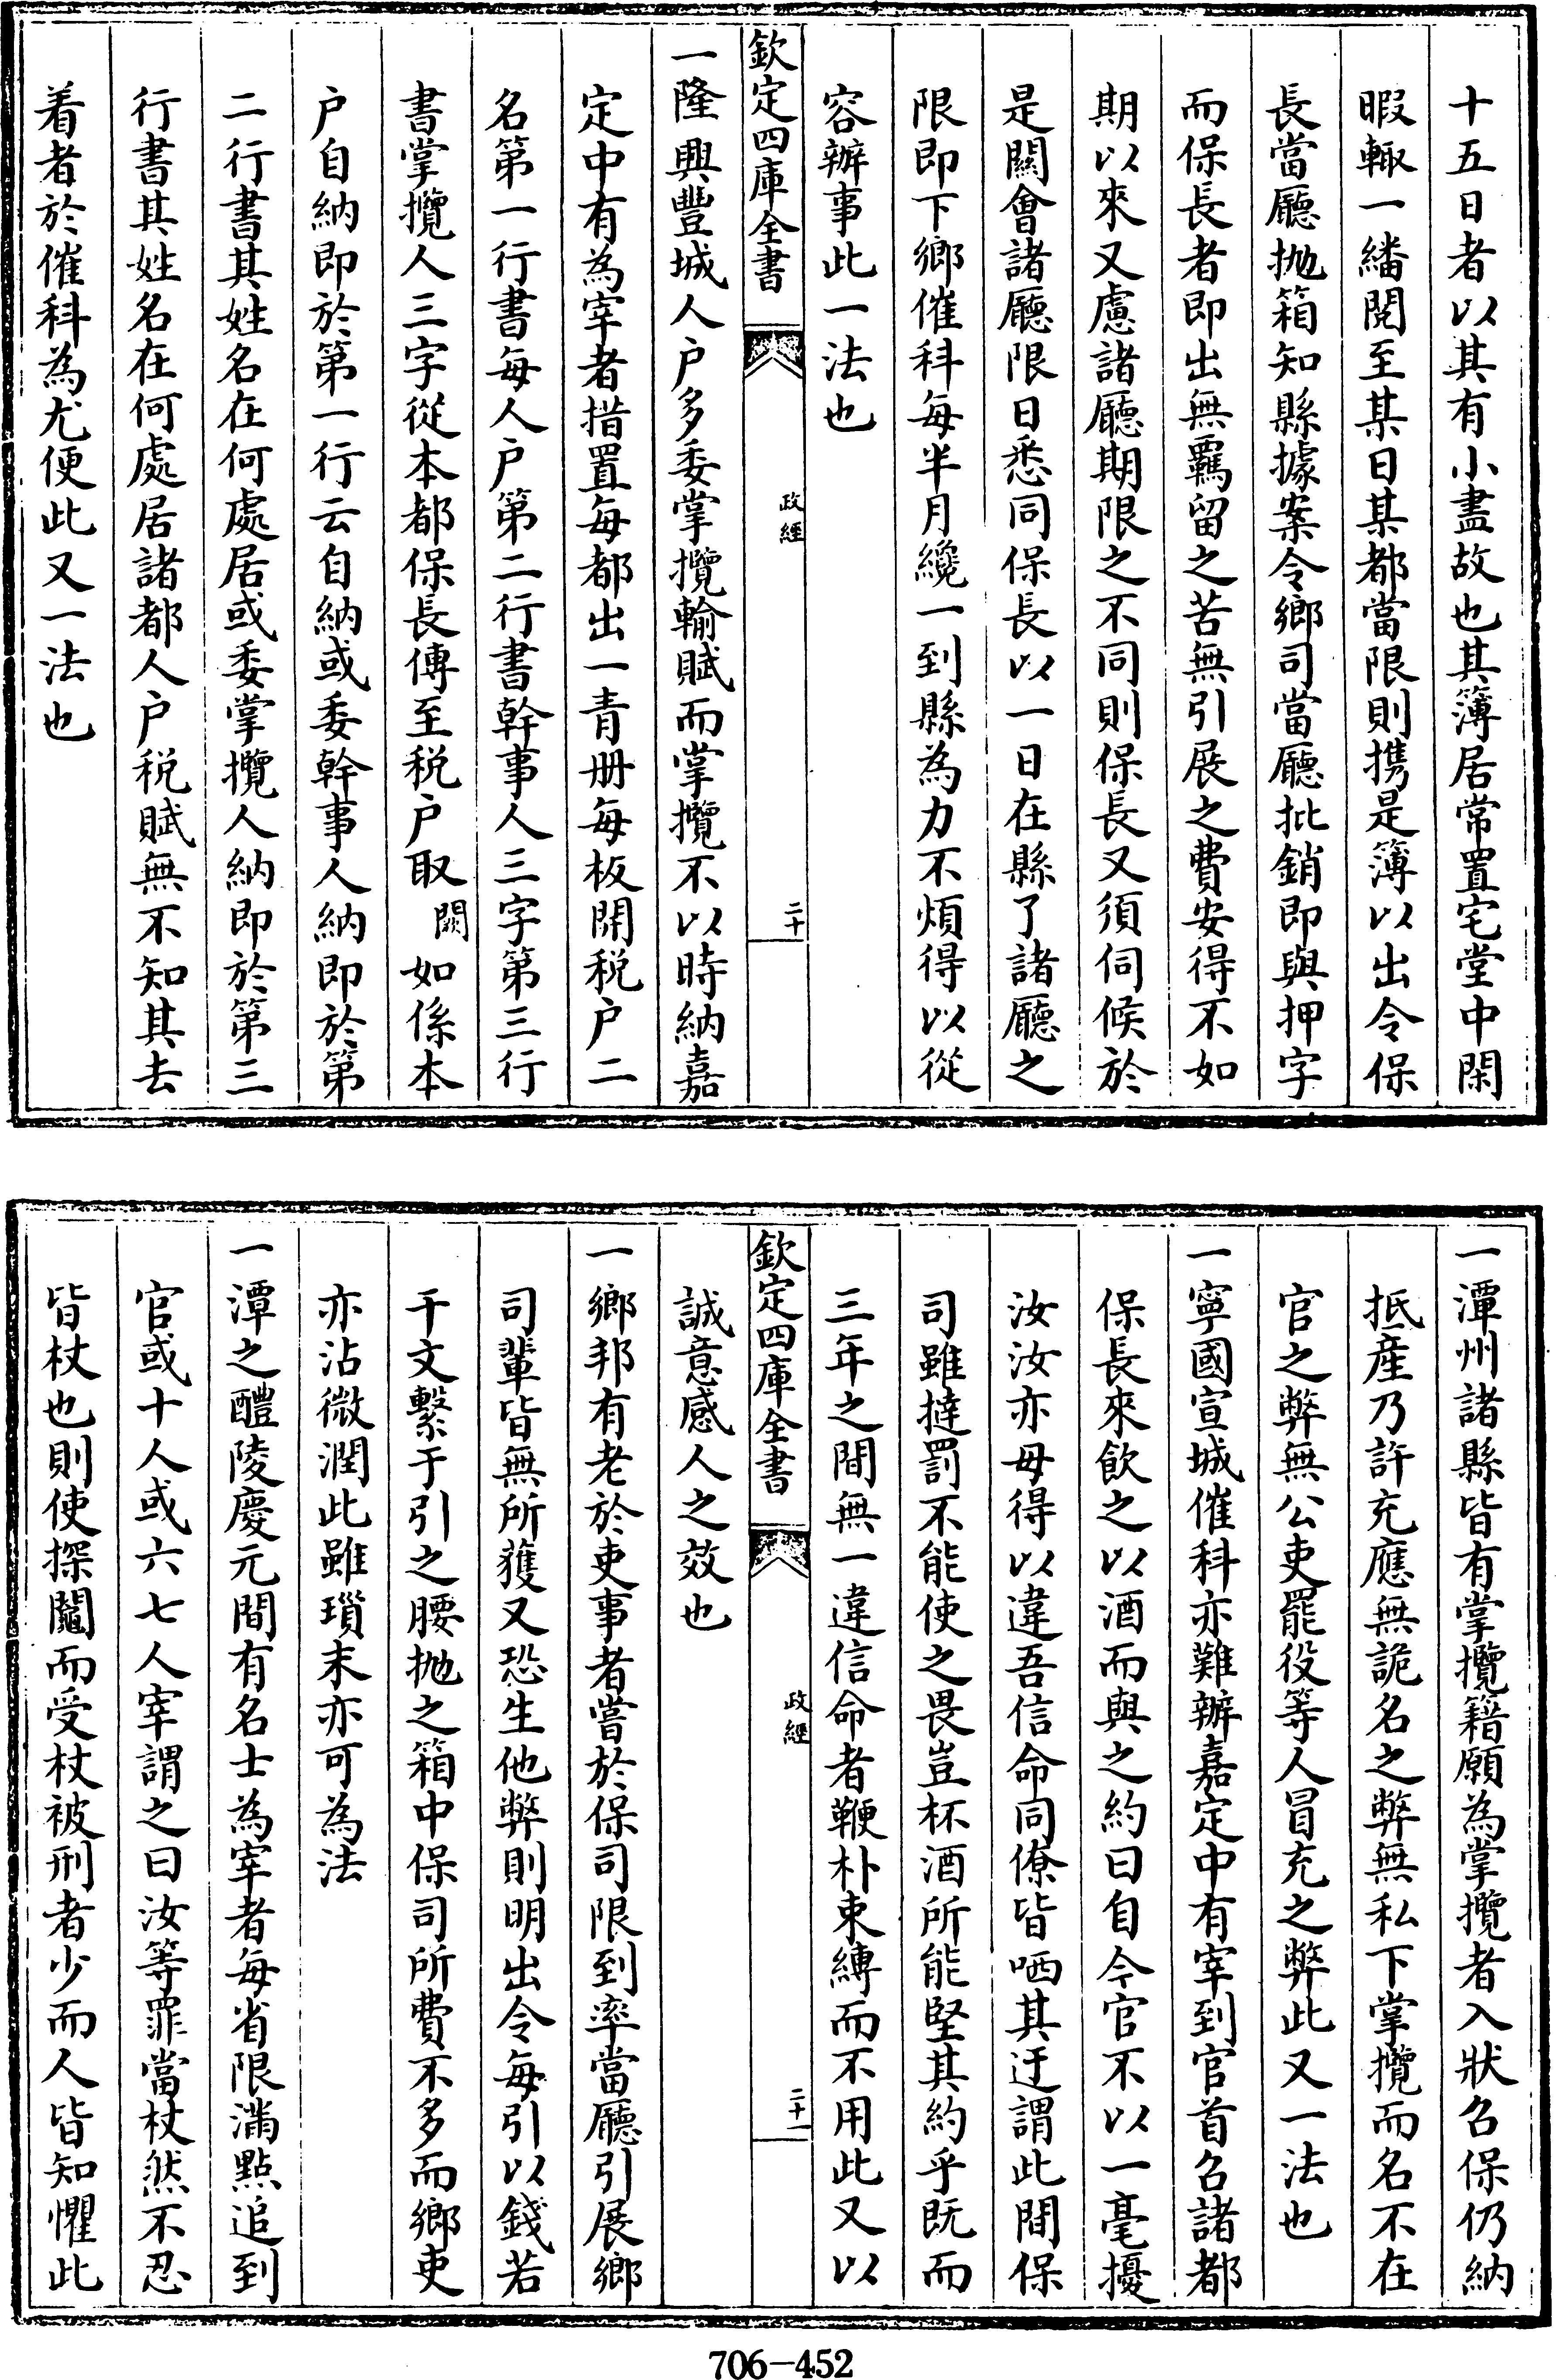 十五日者以其有小盡故也其簿居常置宅堂中閑
暇輙一繙閱至某日某都當限則携是簿以出令保
長當廳抛箱知縣據案令鄉司當廳批銷即與押字
而保長者即出無羈留之苦無引展之費安得不如
期以來又慮諸廳期限之不同則保長又須伺候於
是關會諸廳限日悉同保長以一日在縣了諸廳之
限即下鄉催科每半月纔一到縣為力不煩得以從
容辦事此一法也
欽定四庫全書
政經
二十
一隆興豐城人户多委掌攬輸賦而掌攬不以時納嘉
定中有為宰者措置每都出一青册每板開税户二
名第一行書每人户第二行書幹事人三字第三行
書掌攬人三字從本都保長傳至税户取闕如係本
户自納即於第一行云自納或委幹事人納即於第
二行書其姓名在何處居或委掌攬人納即於第三
行書其姓名在何處居諸都人户税賦無不知其去
着者於催科為尤便此又一法也
一潭州諸縣皆有掌攬籍願為掌攬者入狀召保仍納
抵産乃許充應無詭名之弊無私下掌攬而名不在
官之弊無公吏罷役等人冒充之弊此又一法也
一寧國宣城催科亦難辦嘉定中有宰到官首召諸都
保長來飲之以酒而與之約曰自今官不以一毫擾
汝汝亦毋得以違吾信命同僚皆哂其迂謂此間保
司雖撻罰不能使之畏豈杯酒所能堅其約乎既而
三年之間無一違信命者鞭朴束縛而不用此又以
欽定四庫全書
政經
二十一
誠意感人之效也
一鄉邦有老於吏事者嘗於保司限到率當廳引展鄉
司輩皆無所獲又恐生他弊則明出令每引以錢若
干文繫于引之腰抛之箱中保司所費不多而鄉吏
亦沾微潤此雖瑣末亦可為法
一潭之醴陵慶元間有名士為宰者每省限滿點追到
官或十人或六七人宰謂之曰汝等罪當杖然不忍
皆杖也則使探鬮而受杖被刑者少而人皆知懼此
706-452